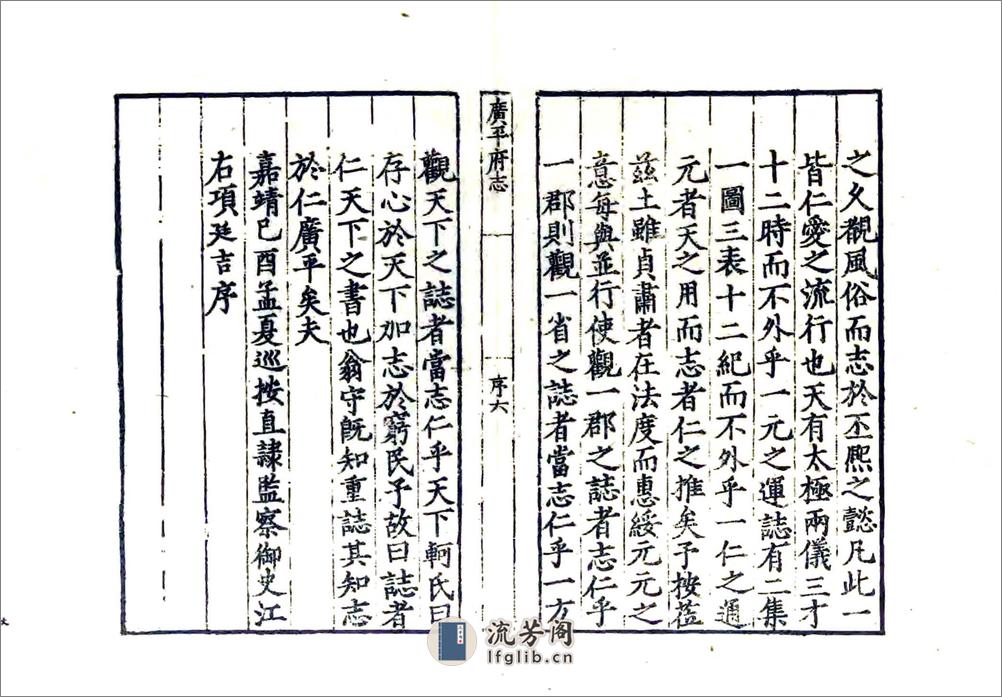 之文觀風俗而志於丕熙之懿凡此一
皆仁愛之流行也天有太極兩儀三才
十二時而不外乎一元之運誌有二集
一圖三表十二紀而不外乎一仁之通
元者天之用而志者仁之推矣予按莅
兹土雖貞肅者在法度而惠綏元元之
意每與並行使觀一郡之誌者志仁乎
一郡則觀一省之誌者當志仁乎一方
廣平府志
序六
觀天下之誌者當志仁乎天下軻氏曰
存心於天下加志於窮民予故曰誌者
仁天下之書也翁守既知重誌其知志
於仁廣平矣夫
嘉靖己酉孟夏巡按直隷監察御史江
右項廷吉序
流芳阁
lfglib.cn